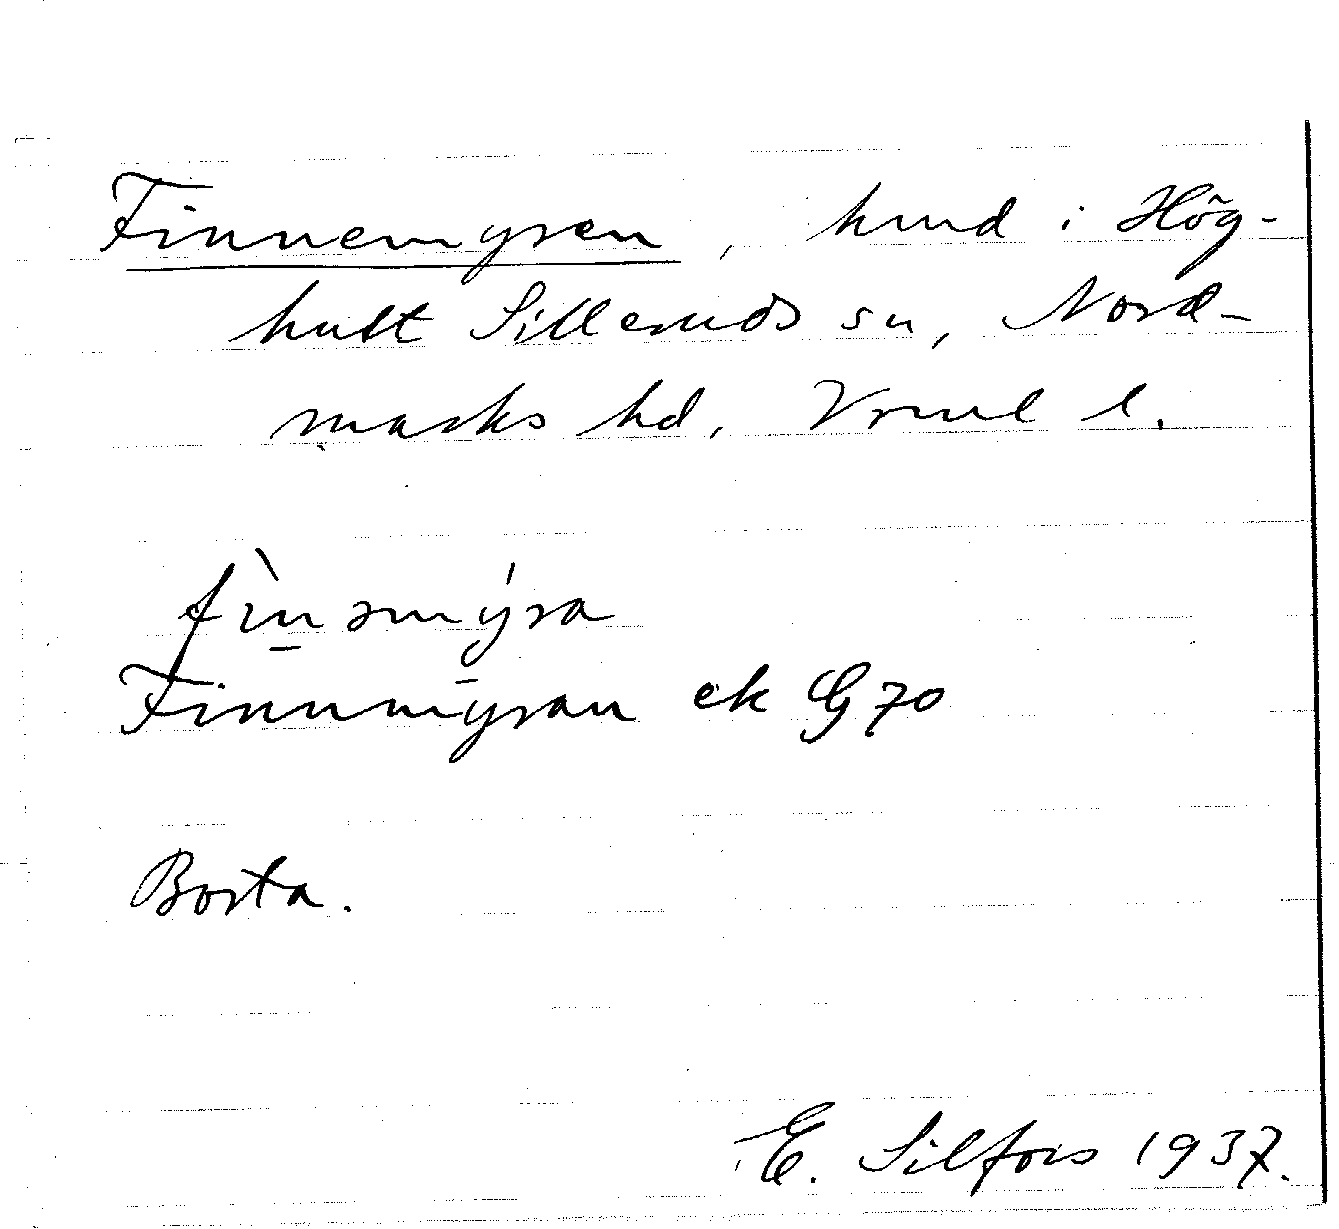 Finnemyren, hmd i Hög-
hult Silleruds sn, Nord-
marks hd, Vrml l.
fìnəmýra
Finnmyran ek G 70
Borta.
E. Silfors 1937.